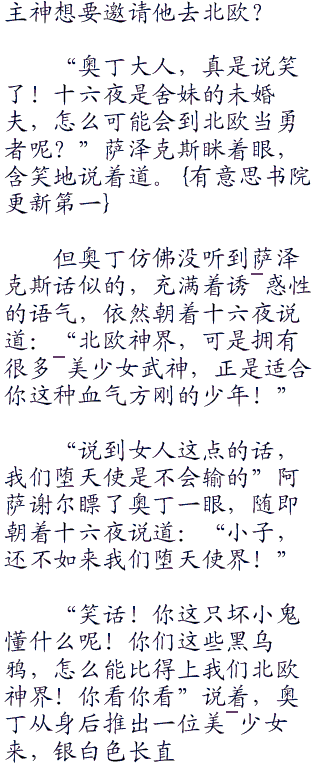 主神想要邀请他去北欧？
“奥丁大人，真是说笑
了！十六夜是舍妹的未婚
夫，怎么可能会到北欧当勇
者呢？”萨泽克斯眯着眼，
含笑地说着道。{有意思书院
更新第一}
但奥丁仿佛没听到萨泽
克斯话似的，充满着诱¯惑性
的语气，依然朝着十六夜说
道：“北欧神界，可是拥有
很多¯美少女武神，正是适合
你这种血气方刚的少年！”
“说到女人这点的话，
我们堕天使是不会输的”阿
萨谢尔瞟了奥丁一眼，随即
朝着十六夜说道：“小子，
还不如来我们堕天使界！”
“笑话！你这只坏小鬼
懂什么呢！你们这些黑乌
鸦，怎么能比得上我们北欧
神界！你看你看”说着，奥
丁从身后推出一位美¯少女
来，银白色长直